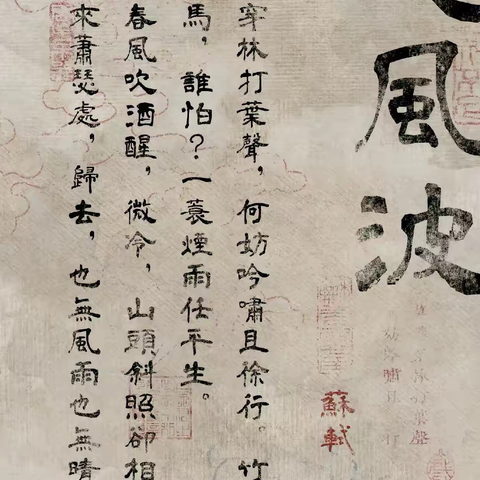 風波
蘇軾
穿林打葉聲，何妨吟嘯且徐行。竹
馬，誰怕？一蓑煙雨任平生。
春風吹酒醒，微冷，山頭斜照卻相
來蕭瑟處，歸去，也無風雨也無晴